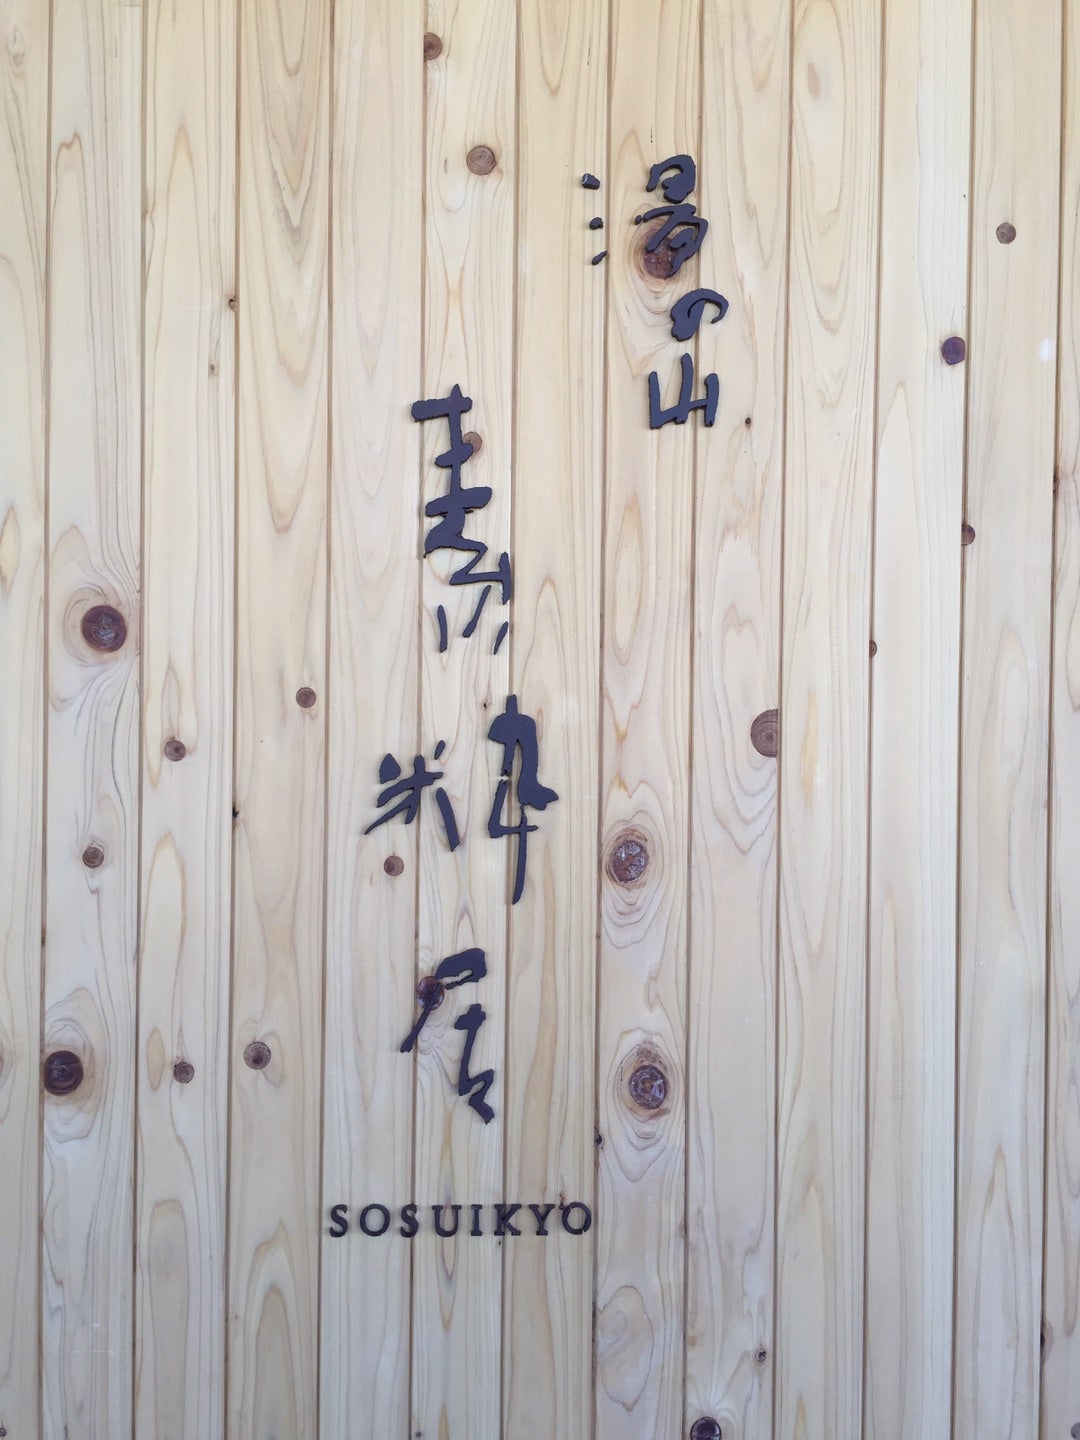 湯の山
素粋居
SOSUIKYO